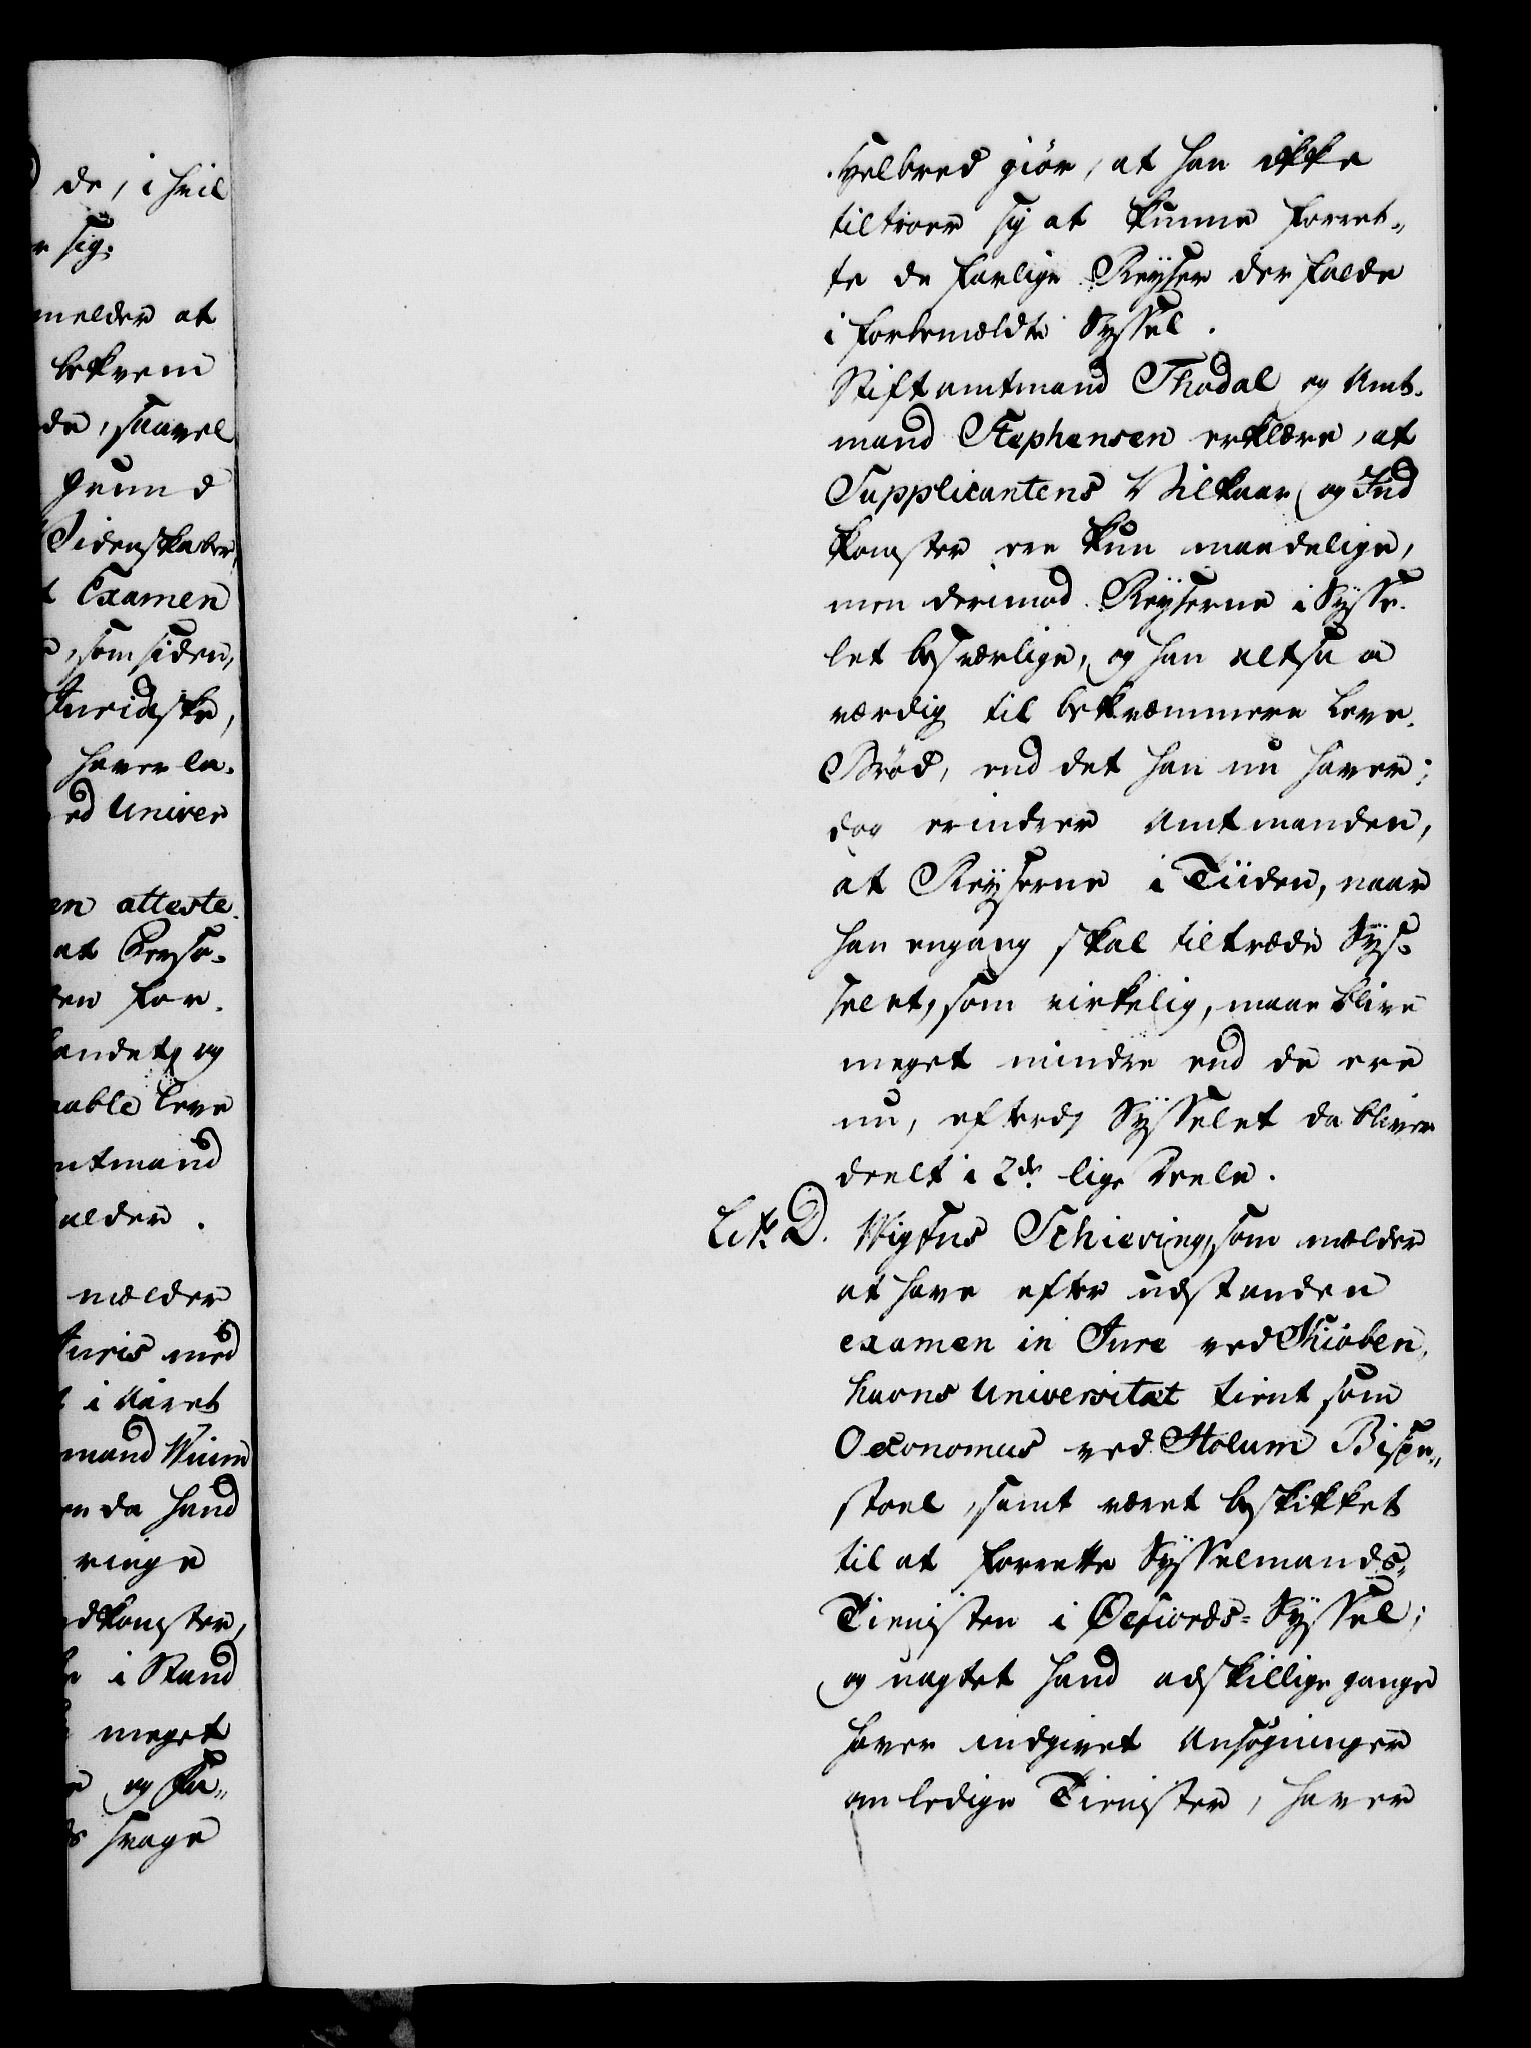 de, i hvil
r sig.
melder at
bekvem
de, saavel
grund
Videnskaber,
t Examen
, som siden,
Juridiske,
haver la-
ed Univer
en atteste-
at Perso-
en for-
andet og
able Leve
ntmand
alder.
melder
Juris med
t i Aaret
mand Wium
en da hand
ringe
dkomster,
i Stand
meget
og Fa-
s svage
Helbred giør, at han ikke
tiltroer sig at kunne forret-
te de farlige Reyser der falde
i forbemeldte Syssel.
Stiftamtmand Thodal og Amt-
mand Stephensen erklære, at
Supplicantens Vilkaar og Ind
komster ere kun maadelige,
men derimod Reyserne i Sysse-
let besværlige, og han altsaa
værdig til bekvemmere Leve-
Brød, end det han nu haver;
dog erindrer Amtmanden,
at Reyserne i Tiiden, naar
han engang skal tiltræde Sys-
selet, som virkelig, maae blive
meget mindre end de ere
nu, efterdj Sysselet da bliver
deelt i 2de lige Deele.
Litr. D. Wigfus Schieving, som melder
at have efter udstanden
examen in Jure ved Kiøben-
havns Universitæt tient som
Oeconomus ved Holum Bispe-
stoel, samt været beskikket
til at forrette Sysselmands-
Tienisten i Øefiords-Syssel;
og uagtet hand adskillige gange
haver indgivet Ansøgninger
om ledige Tienister, haver